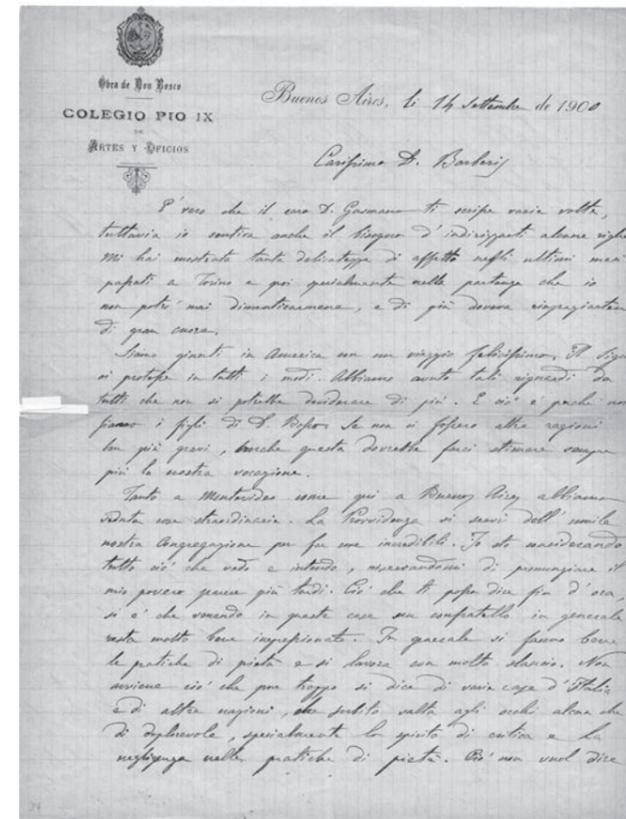 Obra de Don Bosco
COLEGIO PIO IX
DE
ARTES Y OFICIOS
Buenos Aires, li 14 Settembre de 1900
Carissimo D. Barberis
E' vero che il caro D. Gusmano ti scrisse varie volte,
tuttavia io sentiva anche il bisogno d'indirizzarti alcune righe
Mi hai mostrata tanta delicatezza di affetto negli ultimi mesi
passati a Torino e poi specialmente nella partenza che io
non potrò mai dimenticarmene, e di più doveva ringraziarti
di gran cuore.
Siamo giunti in America con un viaggio felicissimo. Il Sig
ci protesse in tutti i modi. Abbiamo avuto tali riguardi da
tutti che non si potrebbe desiderare di più. E ciò è perchè noi
siamo i figli di D. Bosco. Se non ci fossero altre ragioni
ben più gravi, anche questa dovrebbe farci stimare sempre
più la nostra vocazione.
Tanto a Montevideo come qui a Buenos Aires abbiamo
veduto cose straordinarie. La Provvidenza si servì dell'umile
nostra Congregazione per far cose incredibili. Io sto considerando
tutto ciò che vedo e intendo, riservandomi di pronunziare il
mio povero parere più tardi. Ciò che ti posso dire fin d'ora,
si è che venendo in queste case un confratello in generale
resta molto bene impressionato. In generale si fanno bene
le pratiche di pietà e si lavora con molto slancio. Non
avviene ciò che pur troppo si dice di varie case d'Italia
e di altre nazioni, che subito salta agli occhi alcun che
di deplorevole, specialmente lo spirito di critica e la
negligenza nelle pratiche di pietà. Ciò non vuol dire